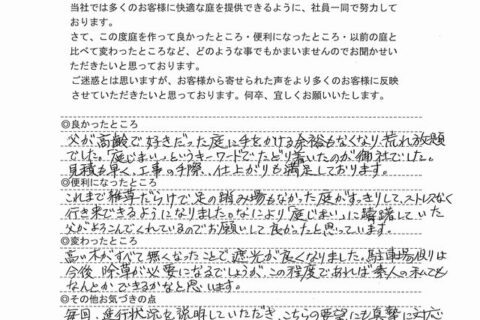 当社では多くのお客様に快適な庭を提供できるように、社員一同で努力して
おります。
さて、この度庭を作って良かったところ・便利になったところ・以前の庭と
比べて変わったところなど、どのような事でもかまいませんのでお聞かせい
ただきたいと思っております。
ご迷惑とは思いますが、お客様から寄せられた声をより多くのお客様に反映
させていただきたいと思っております。何卒、宜しくお願いいたします。
◎良かったところ
父が高齢で好きだった庭に手をかける余裕もなくなり、荒れ放題
でした。「庭じまい」というキーワードでたどり着いたのが御社でした。
見積も早く、工事の手際、仕上がりも満足しております。
◎便利になったところ
これまで雑草だらけで足の踏み場もなかった庭がすっきりして、ストレスなく
行き来できるようになりました。なにより「庭じまい」に躊躇していた
父がよろこんでくれているのでお願いして良かったと思っています。
◎変わったところ
高い木がすべて無くなったことで遮光が良くなりました。駐車場周りは
今後、除草が必要になるでしょうが、この程度であれば素人の私でも
なんとかできるかなと思います。
◎その他お気づきの点
毎回、進行状況を説明していただき、こちらの要望にも真摯に対応